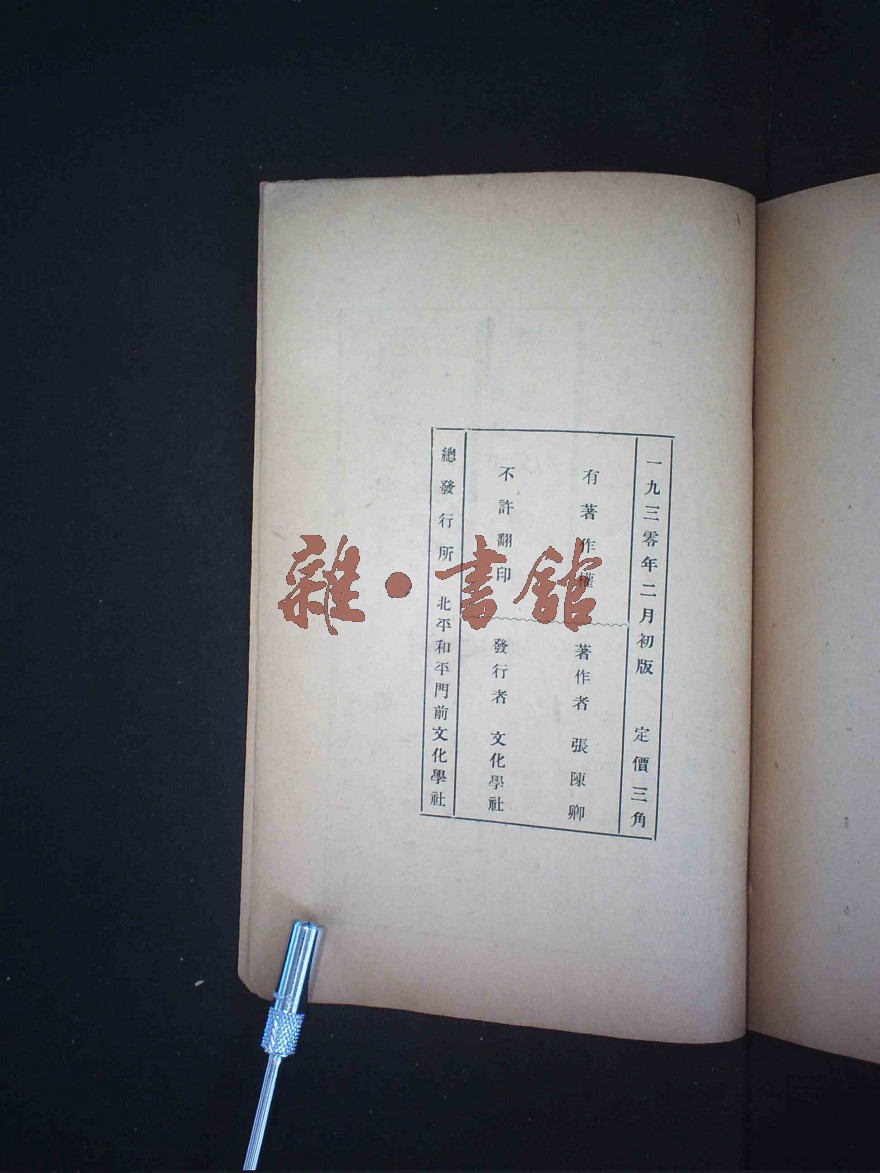 一九三零年二月初版　定價三角
有著作權
不許翻印
著作者　張陳卿
發行者　文化學社
總發行所　北平和平門前文化學社
雜·書館